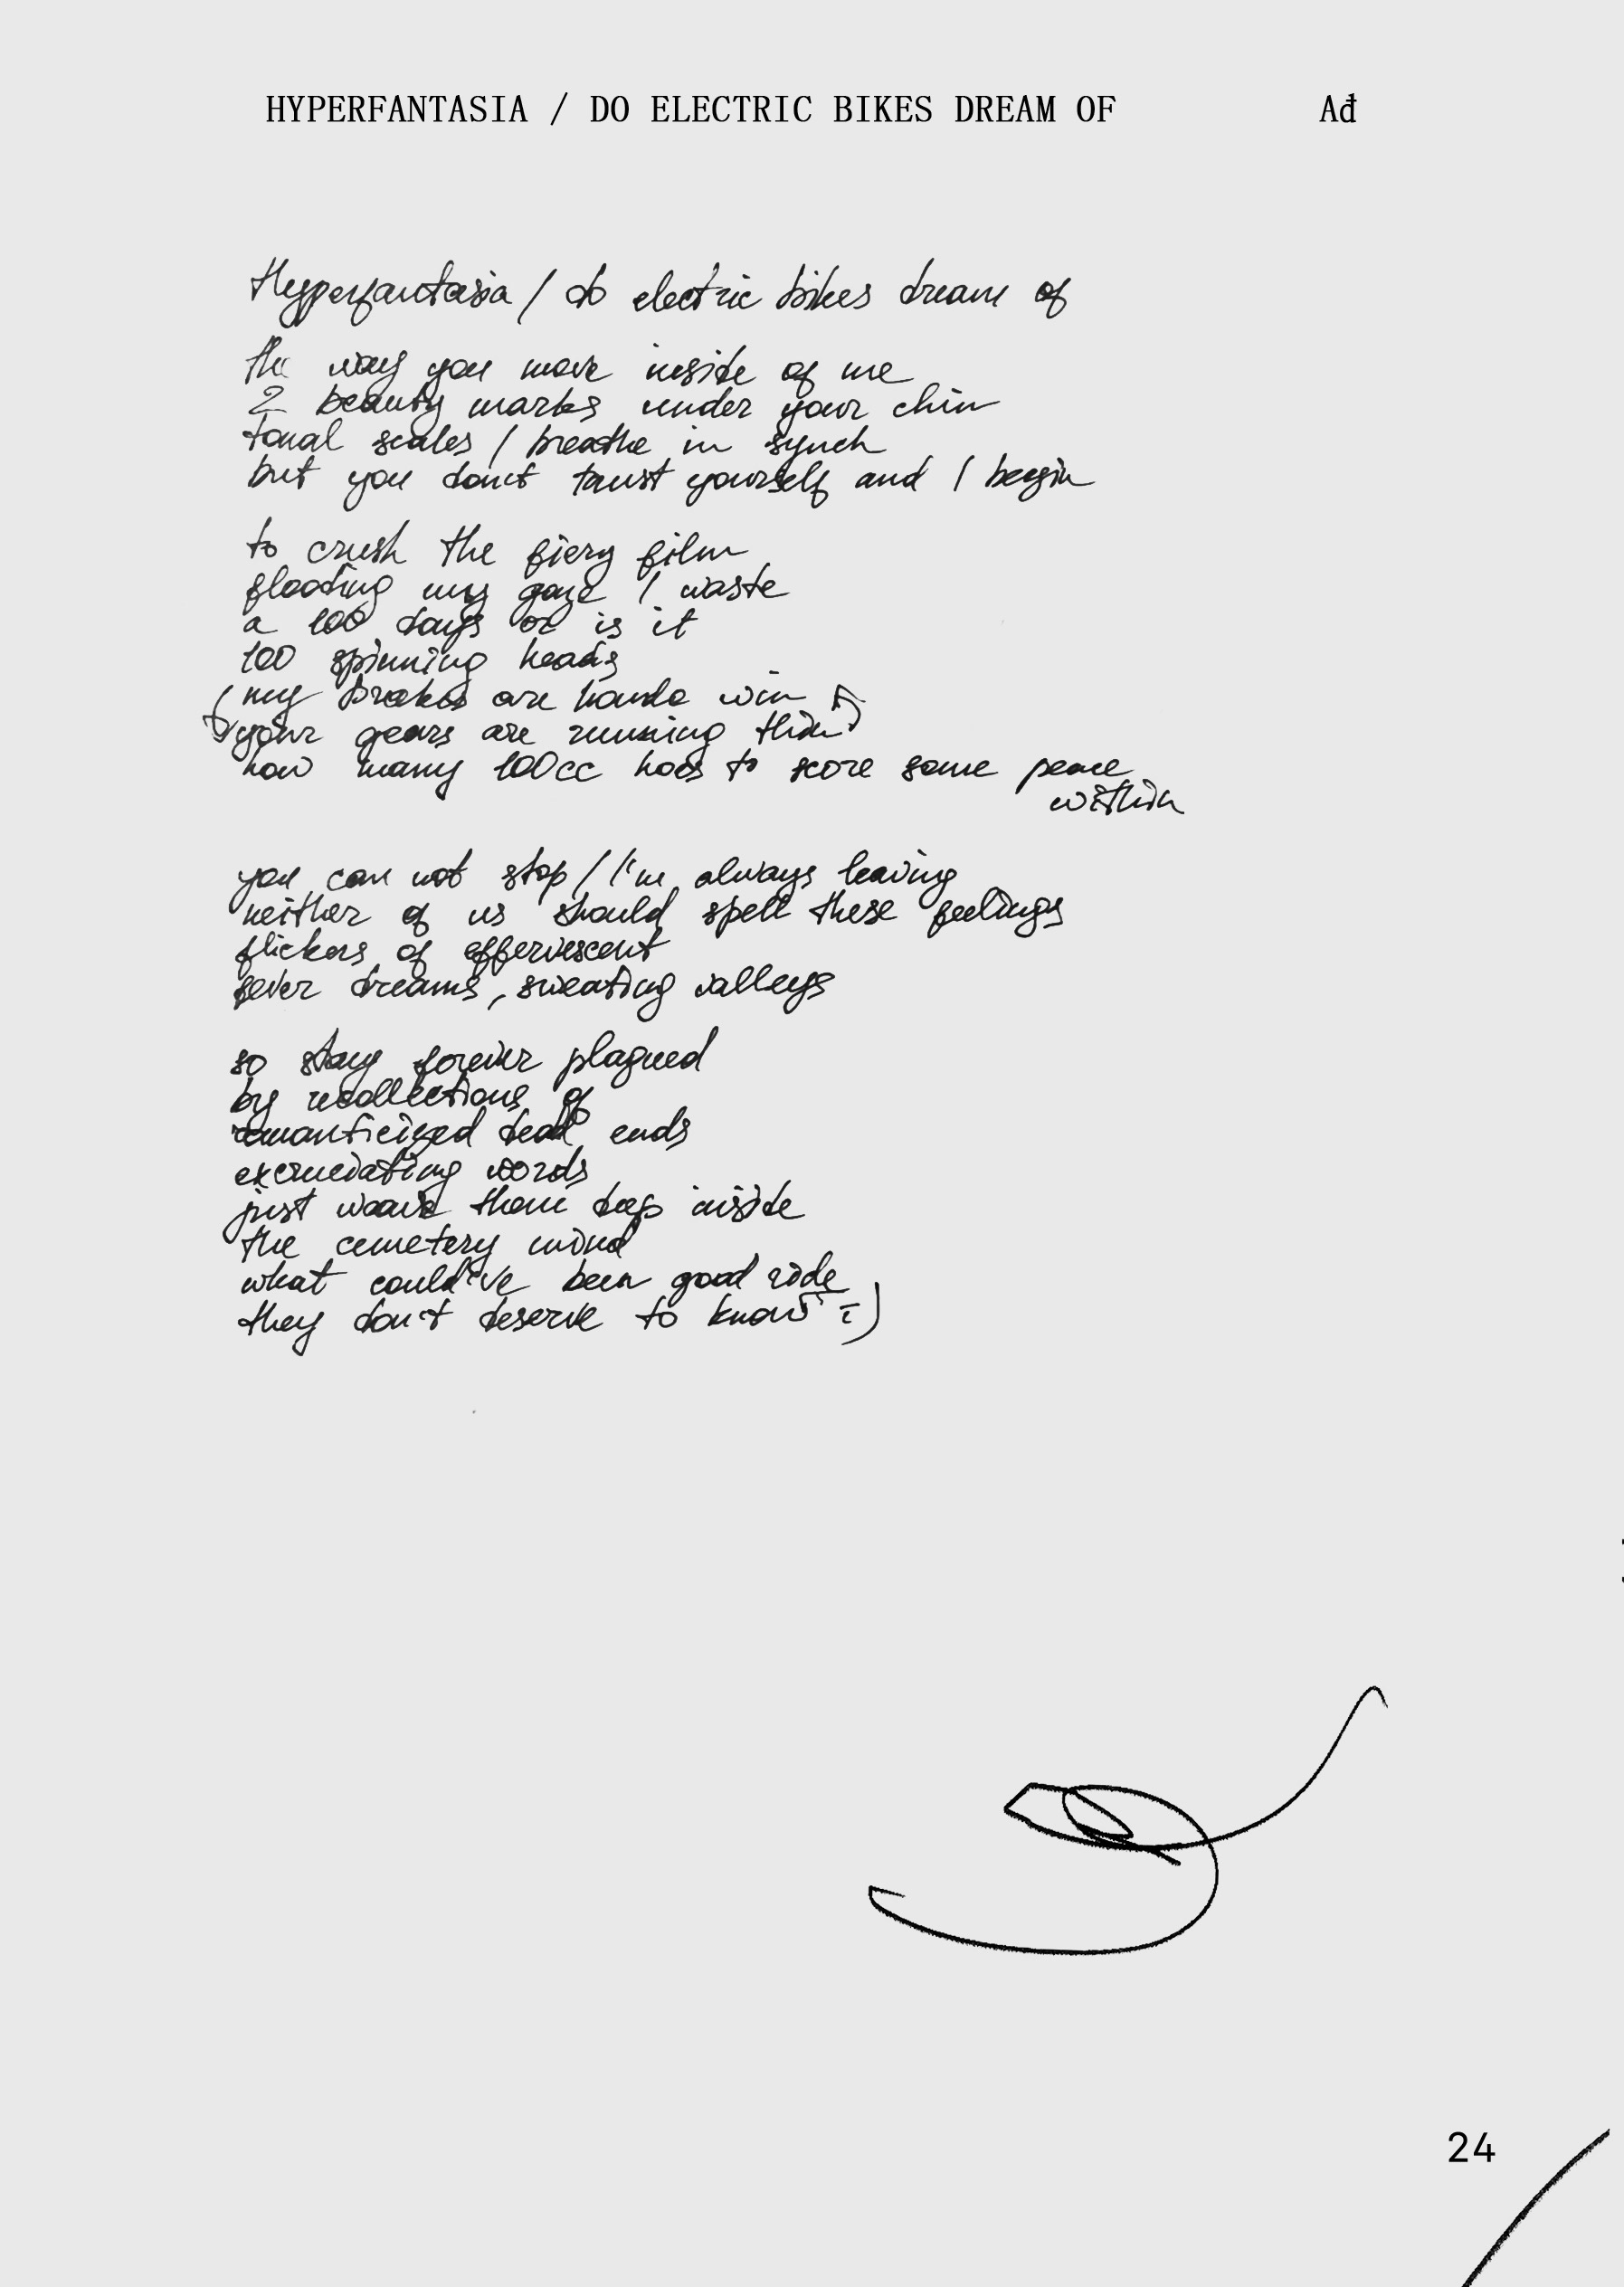 HYPERFANTASIA / DO ELECTRIC BIKES DREAM OF Ađ
Hyperfantasia / do electric bikes dream of
the way you move inside of me
2 beauty marks under your chin
tonal scales / breathe in synch
but you don't trust yourself and I begin
to crush the fiery film
flooding my gaze / waste
a 100 days or is it
100 spinning heads
my brakes are
your gears are running thin
how many 100cc to score some peace
within
you can not stop / I'm always leaving
neither of us should spell these feelings
flickers of effervescent
fever dreams, sweating valleys
so stay forever plagued
by recollections of
romanticized dead ends
excruciating words
just them deep inside
the cemetery mind
what could've been good ride
they don't deserve to know =)
24